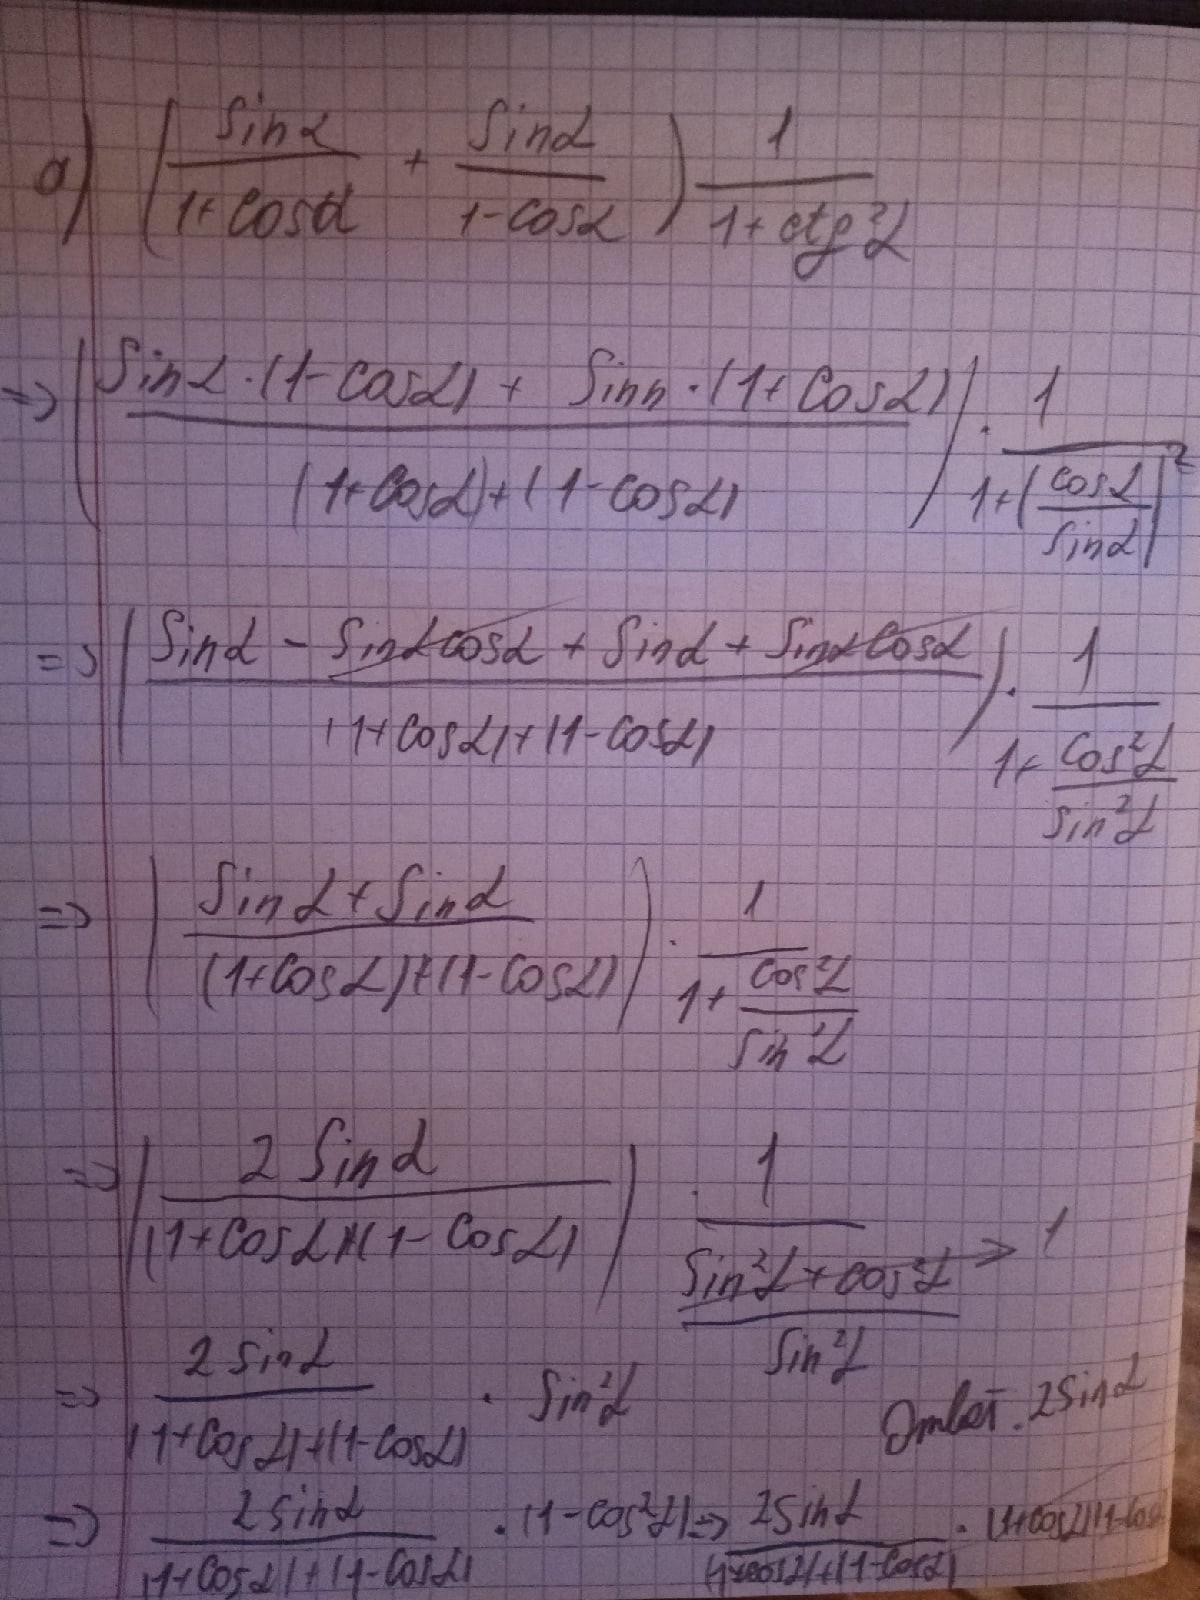 a) (sinα/(1+cosα) + sinα/(1-cosα)) 1/(1+ctg²α)
=> (sinα·(1-cosα) + sinn·(1+cosα))/((1+cosα)+(1-cosα)) · 1/(1+(cosα/sinα)²)
=> (sinα - sinαcosα + sinα + sinαcosα)/((1+cosα)+(1-cosα)) · 1/(1+cos²α/sin²α)
=> (sinα+sinα)/((1+cosα)+(1-cosα)) · 1/(1+cos²α/sin²α)
=> (2sinα)/((1+cosα)+(1-cosα)) · 1/((sin²α+cos²α)/sin²α) → 1
=> 2sinα/((1+cosα)+(1-cosα)) · sin²α
Ответ. 2sinα
=> 2sinα/((1+cosα)+(1-cosα)) · (1-cos²α) => 2sinα/((1+cosα)+(1-cosα)) · (1+cosα)(1-cosα)